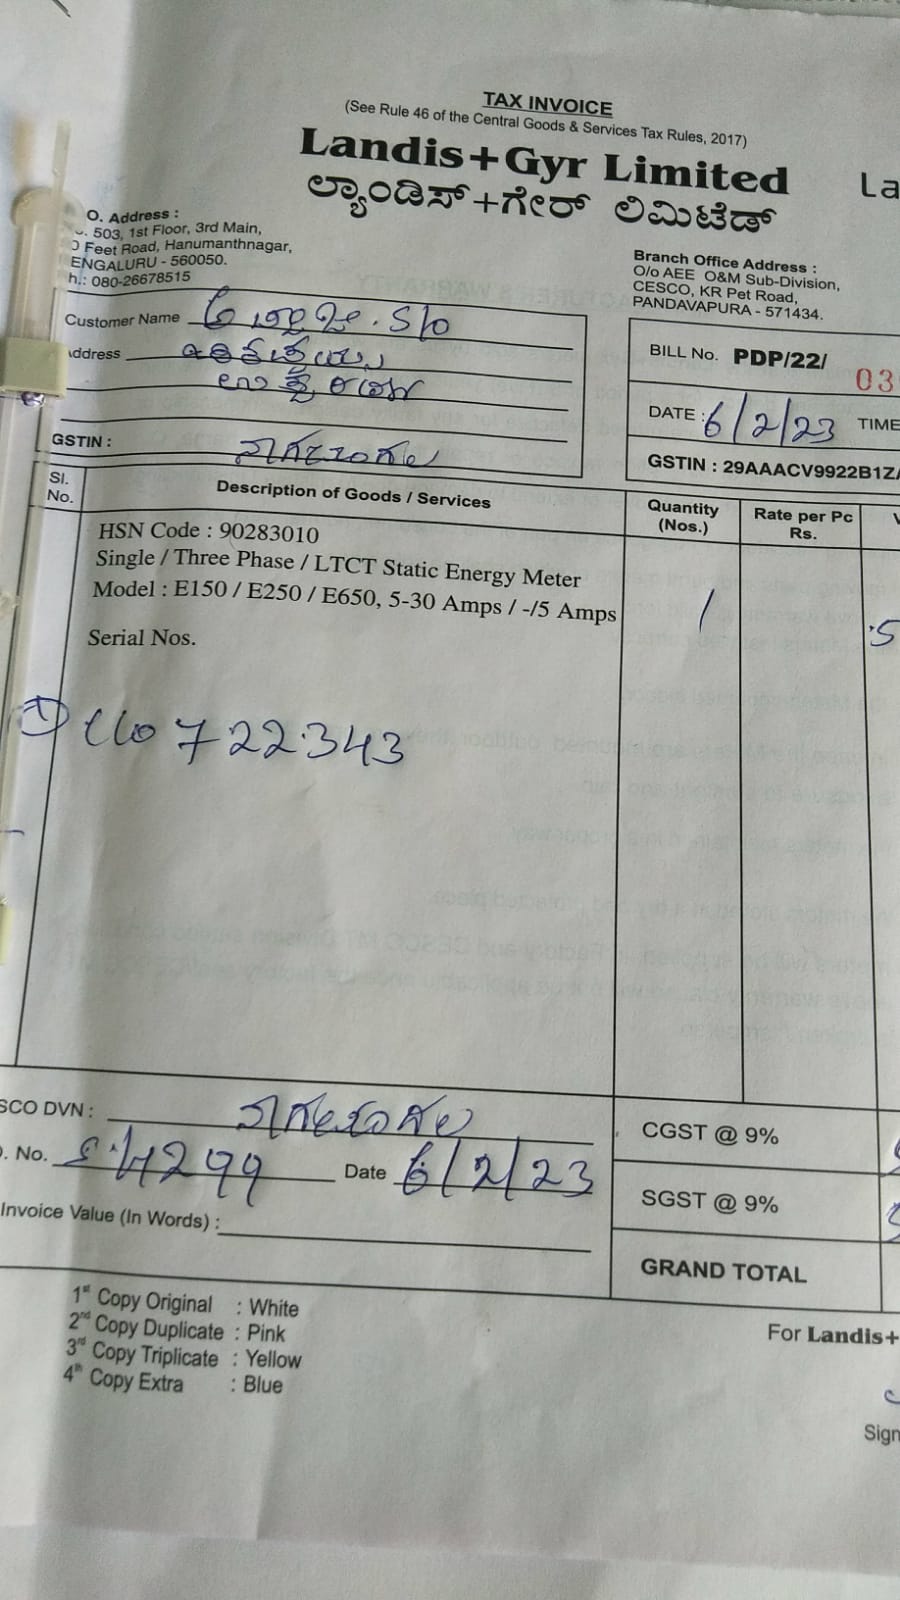 TAX INVOICE
(See Rule 46 of the Central Goods & Services Tax Rules, 2017)
Landis+Gyr Limited
La
ಲ್ಯಾಂಡಿಸ್+ಗೇರ್ ಲಿಮಿಟೆಡ್
O. Address :
503, 1st Floor, 3rd Main,
0 Feet Road, Hanumanthnagar,
ENGALURU - 560050.
h.: 080-26678515
Branch Office Address :
O/o AEE O&M Sub-Division,
CESCO, KR Pet Road,
PANDAVAPURA - 571434.
Customer Name S/o
Address
GSTIN : ನಾಗಮಂಗಲ
BILL No. PDP/22/ 03
DATE : 6/2/23 TIME
GSTIN : 29AAACV9922B1ZA
Sl. No. Description of Goods / Services Quantity (Nos.) Rate per Pc Rs. V
HSN Code : 90283010
Single / Three Phase / LTCT Static Energy Meter
Model : E150 / E250 / E650, 5-30 Amps / -/5 Amps 1 5
Serial Nos.
1) 722343
SCO DVN : ನಾಗಮಂಗಲ
. No. 4299 Date 6/2/23
Invoice Value (In Words) :
CGST @ 9%
SGST @ 9%
GRAND TOTAL
1st Copy Original : White
2nd Copy Duplicate : Pink
3rd Copy Triplicate : Yellow
4th Copy Extra : Blue
For Landis+
Sign